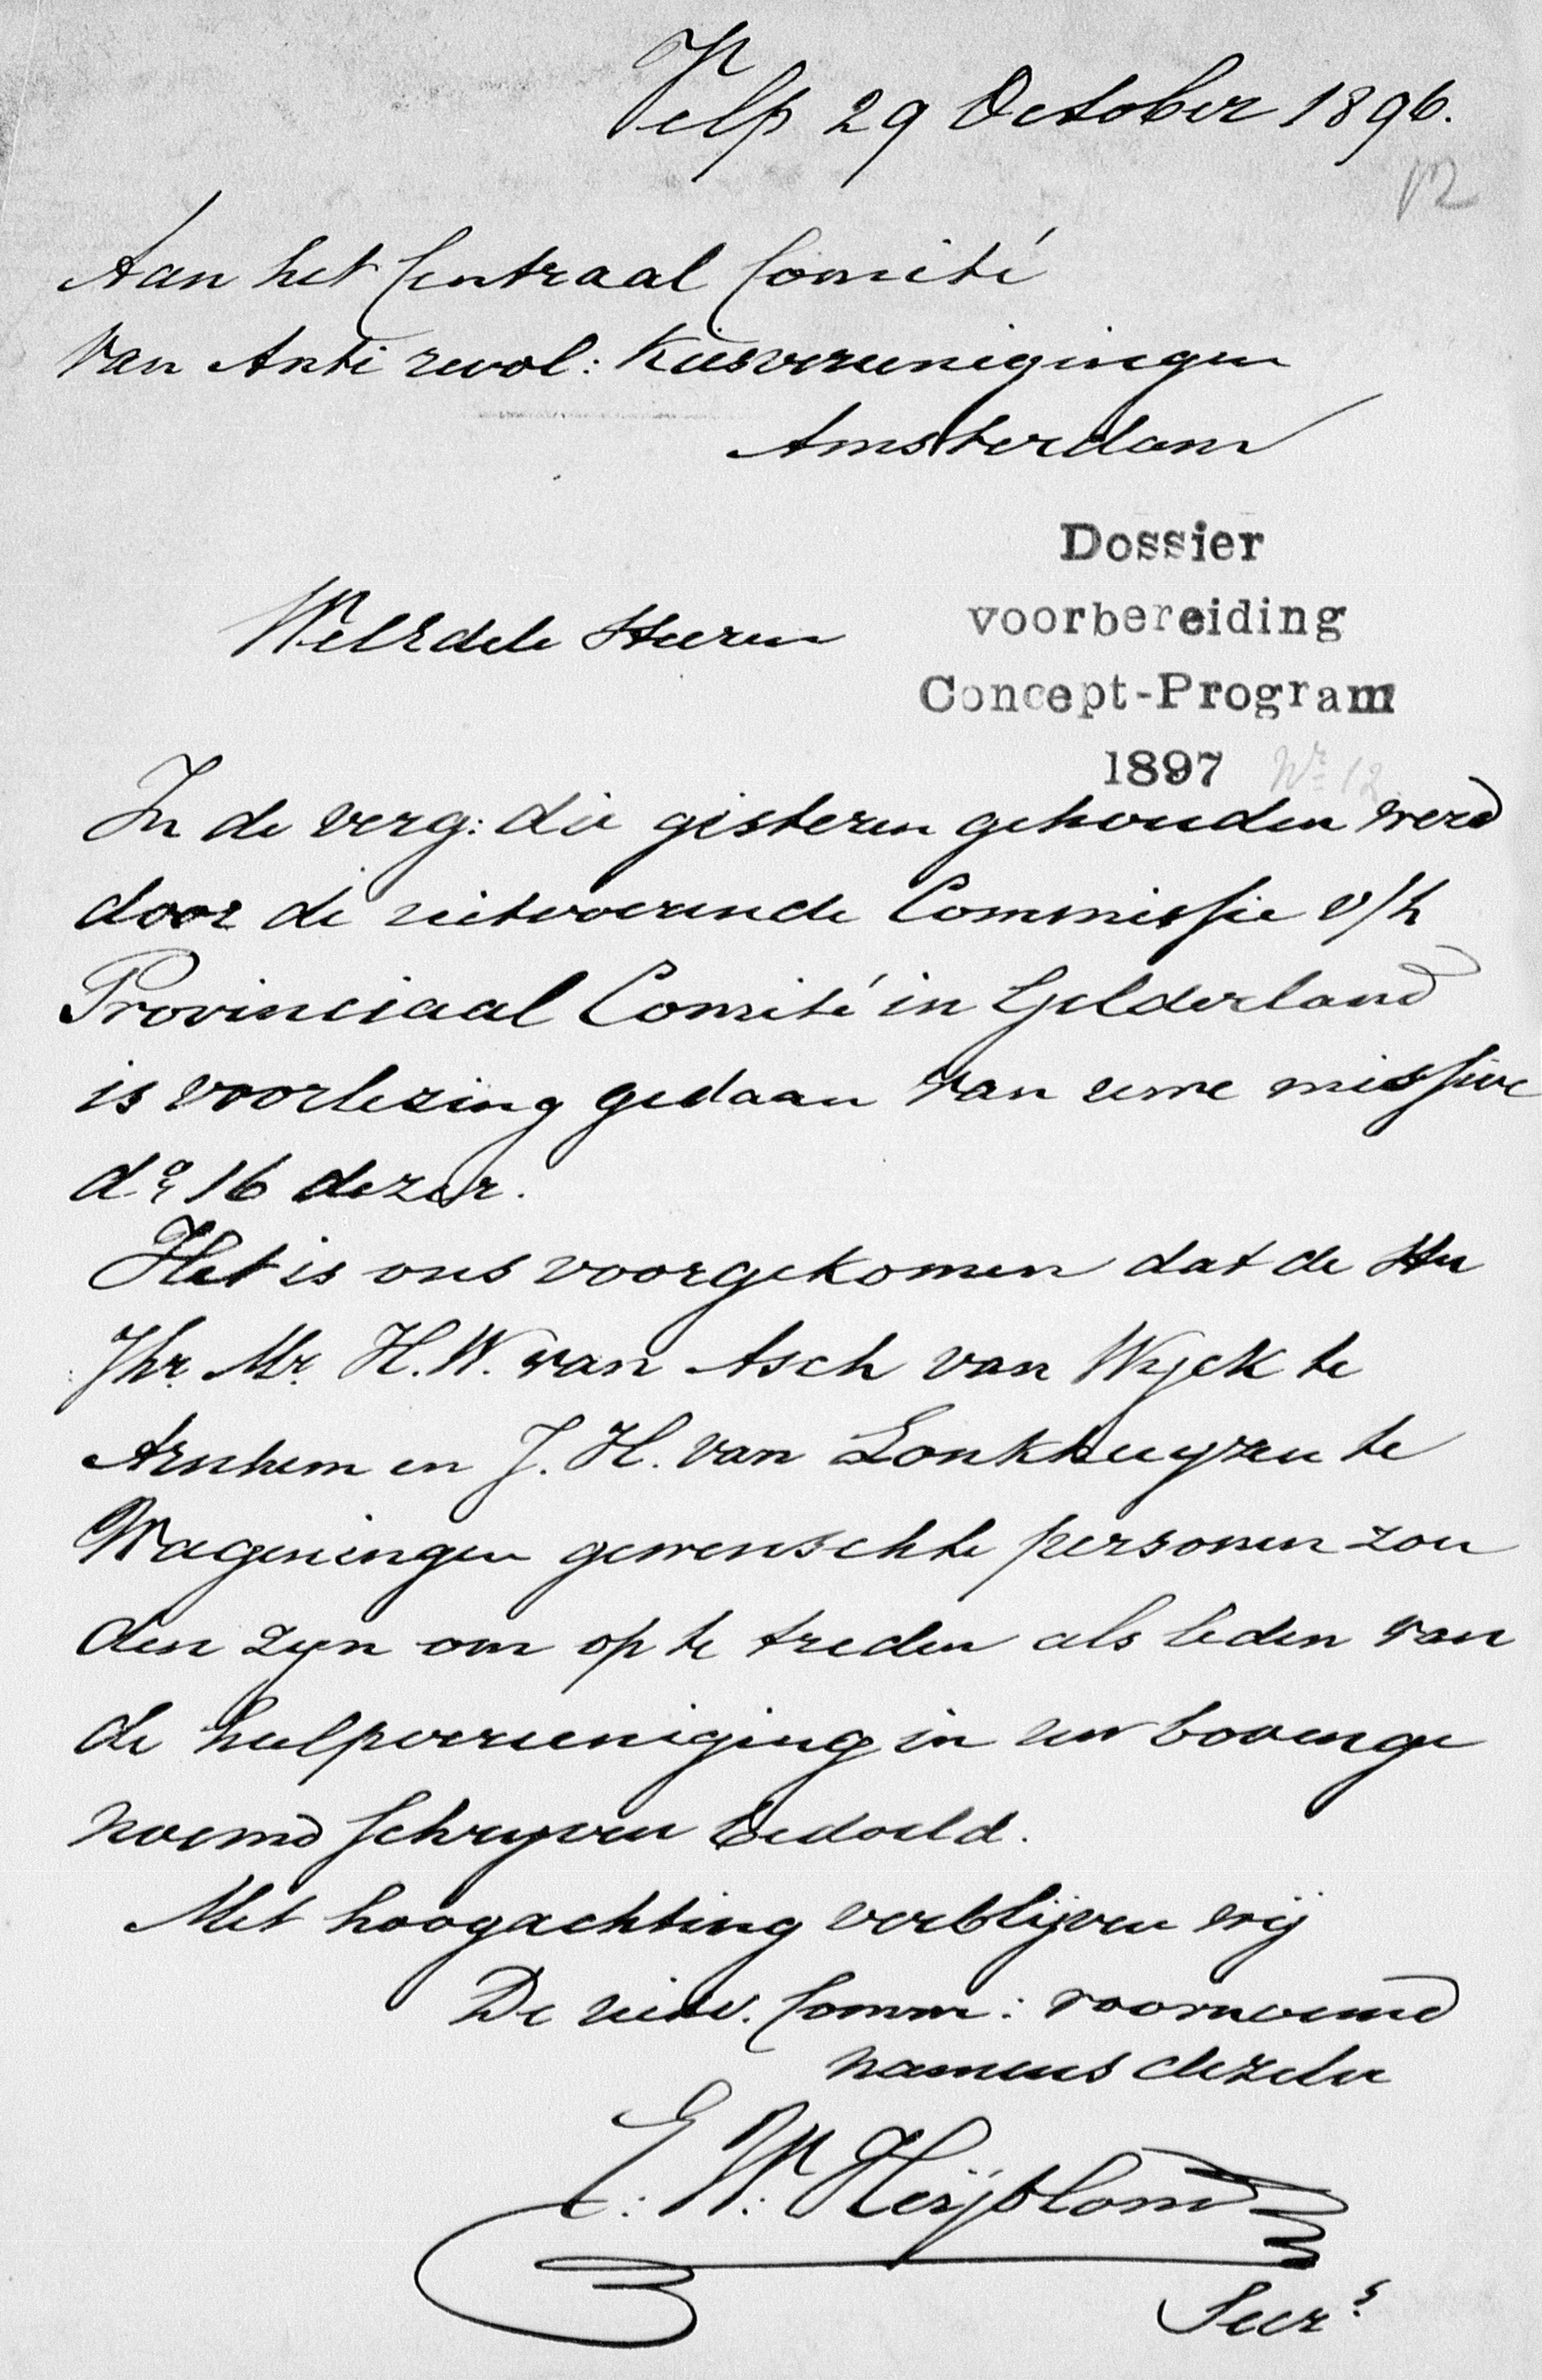 Velp 29 October 1896.
12
Aan het Centraal Comité
van Anti revol: Kiesvereenigingen
Amsterdam
Dossier
voorbereiding
Concept-Program
1897 No 12
WelEdele Heeren
In de verg: die gisteren gehouden werd
door de uitvoerende Commissie v/h
Provinciaal Comité in Gelderland
is voorlezing gedaan van uwe missive
do 16 dezer.
Het is ons voorgekomen dat de Hn
Jhr. Mr. H. W. van Asch van Wyck te
Arnhem en J. H. van Lonkhuyzen te
Wageningen gewenschte personen zou
den zyn om op te treden als leden van
de hulpvereeniging in uw bovenge
noemd schryven bedoeld.
Met hoogachting verblijven wij
De uitv. Comm: voornoemd
namens dezelve
E. W. Heijblom
Secrs